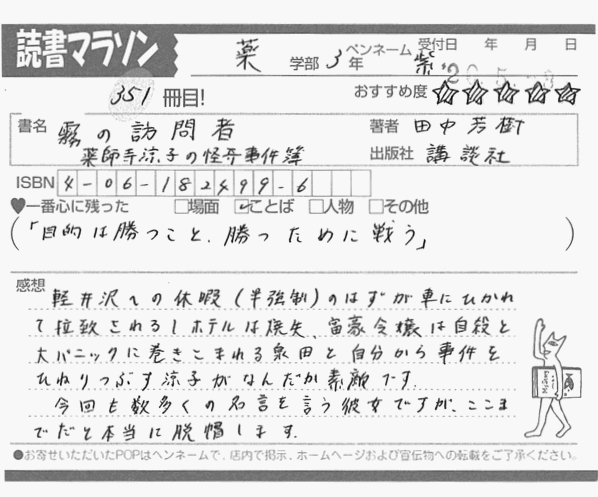 読書マラソン
薬 学部 3年 ペンネーム 紫 受付日 年 月 日
351 冊目! おすすめ度 ☆☆☆☆☆
書名 霧の訪問者 著者 田中芳樹
薬師寺涼子の怪奇事件簿 出版社 講談社
ISBN 4-06-182499-6
♥一番心に残った □場面 ☑ことば □人物 □その他
(「目的は勝つこと、勝つために戦う」)
感想
軽井沢への休暇(半強制)のはずが車にひかれ
て拉致されるしホテルは焼失、富豪令嬢は自殺と
大パニックに巻きこまれる泉田と自分から事件を
ひねりつぶす涼子がなんだか素敵です.
今回も数多くの名言を言う彼女ですが、ここま
でだと本当に脱帽します.
●お寄せいただいたPOPはペンネームで、店内で掲示、ホームページおよび宣伝物への転載をご了承ください。